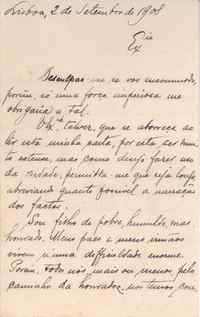 Lisboa, 2 de Setembro de 1908
Exª
Desculpae me se vos incommodo,
porém, só uma força imperiosa me
obrigaria a tal.
V. Exª talvez, que se aborreça ao
ler esta minha carta, por esta ser muito
extensa, mas como desejo fazer uso
da verdade, permitta-me que seja longo
abreviando quanto possivel a narração
dos factos.
Sou filho de pobre, humilde, mas
honrado. Meus paes e meus irmãos
vivem n'uma difficuldade enorme.
Porem, todos nós, mais ou menos pelo
caminho da honradez, nos temos